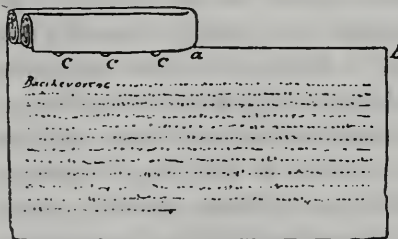 c c c a b
Βασιλεύοντος